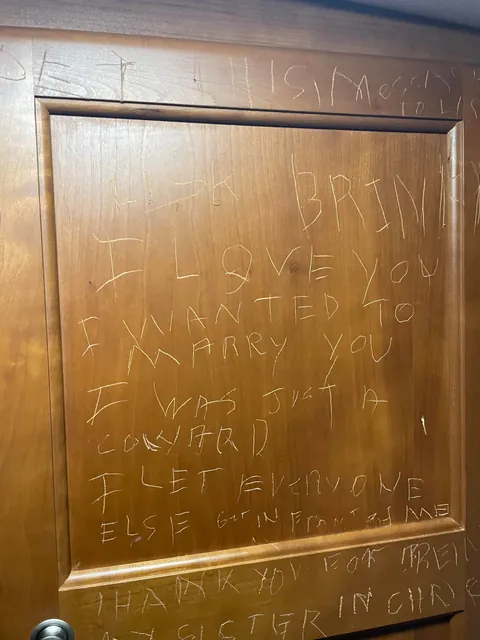 TO
BRIN
I LOVE YOU
I WANTED TO
MARRY YOU
I WAS JUST A
COWARD
I LET EVERYONE
ELSE GET IN FRONT OF ME
THANK YOU FOR
MY SISTER IN CHRIS